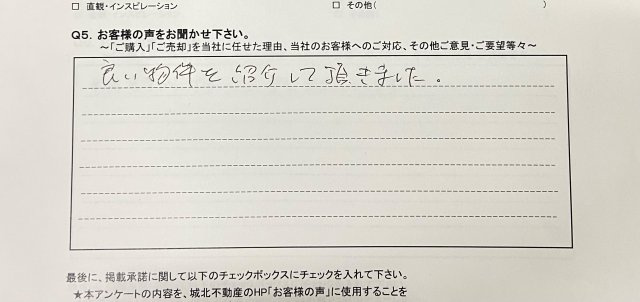 □ 直観・インスピレーション □ その他( )
Q5. お客様の声をお聞かせ下さい。
～「ご購入」「ご売却」を当社に任せた理由、当社のお客様へのご対応、その他ご意見・ご要望等々～
良い物件を紹介して頂きました。
最後に、掲載承諾に関して以下のチェックボックスにチェックを入れて下さい。
★本アンケートの内容を、城北不動産のHP「お客様の声」に使用することを